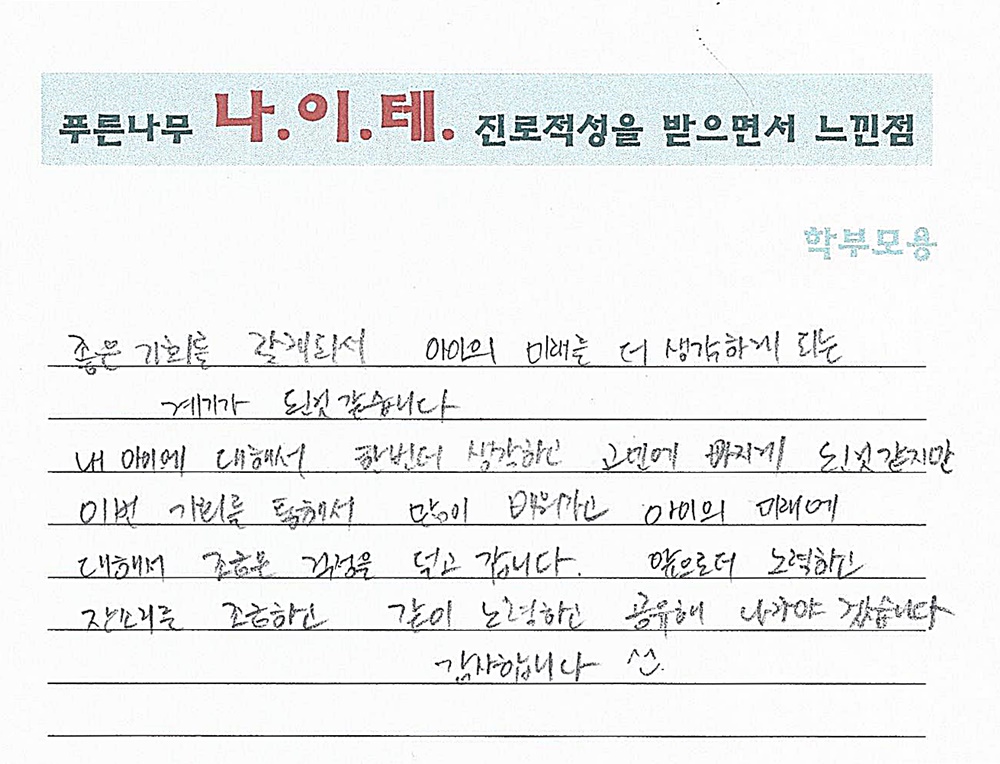 푸른나무 나.이.테. 진로적성을 받으면서 느낀점
학부모용
좋은 기회를 갖게되서 아이의 미래를 더 생각하게 되는
계기가 된것 같습니다
내 아이에 대해서 한번더 생각하고 고민에 빠지게 된것 같지만
이번 기회를 통해서 많이 배워가고 아이의 미래에
대해서 조금은 걱정을 덜고 갑니다. 앞으로더 노력하고
잔소리를 조금하고 같이 노력하고 공유해 나가야 겠습니다
감사합니다 ^^.